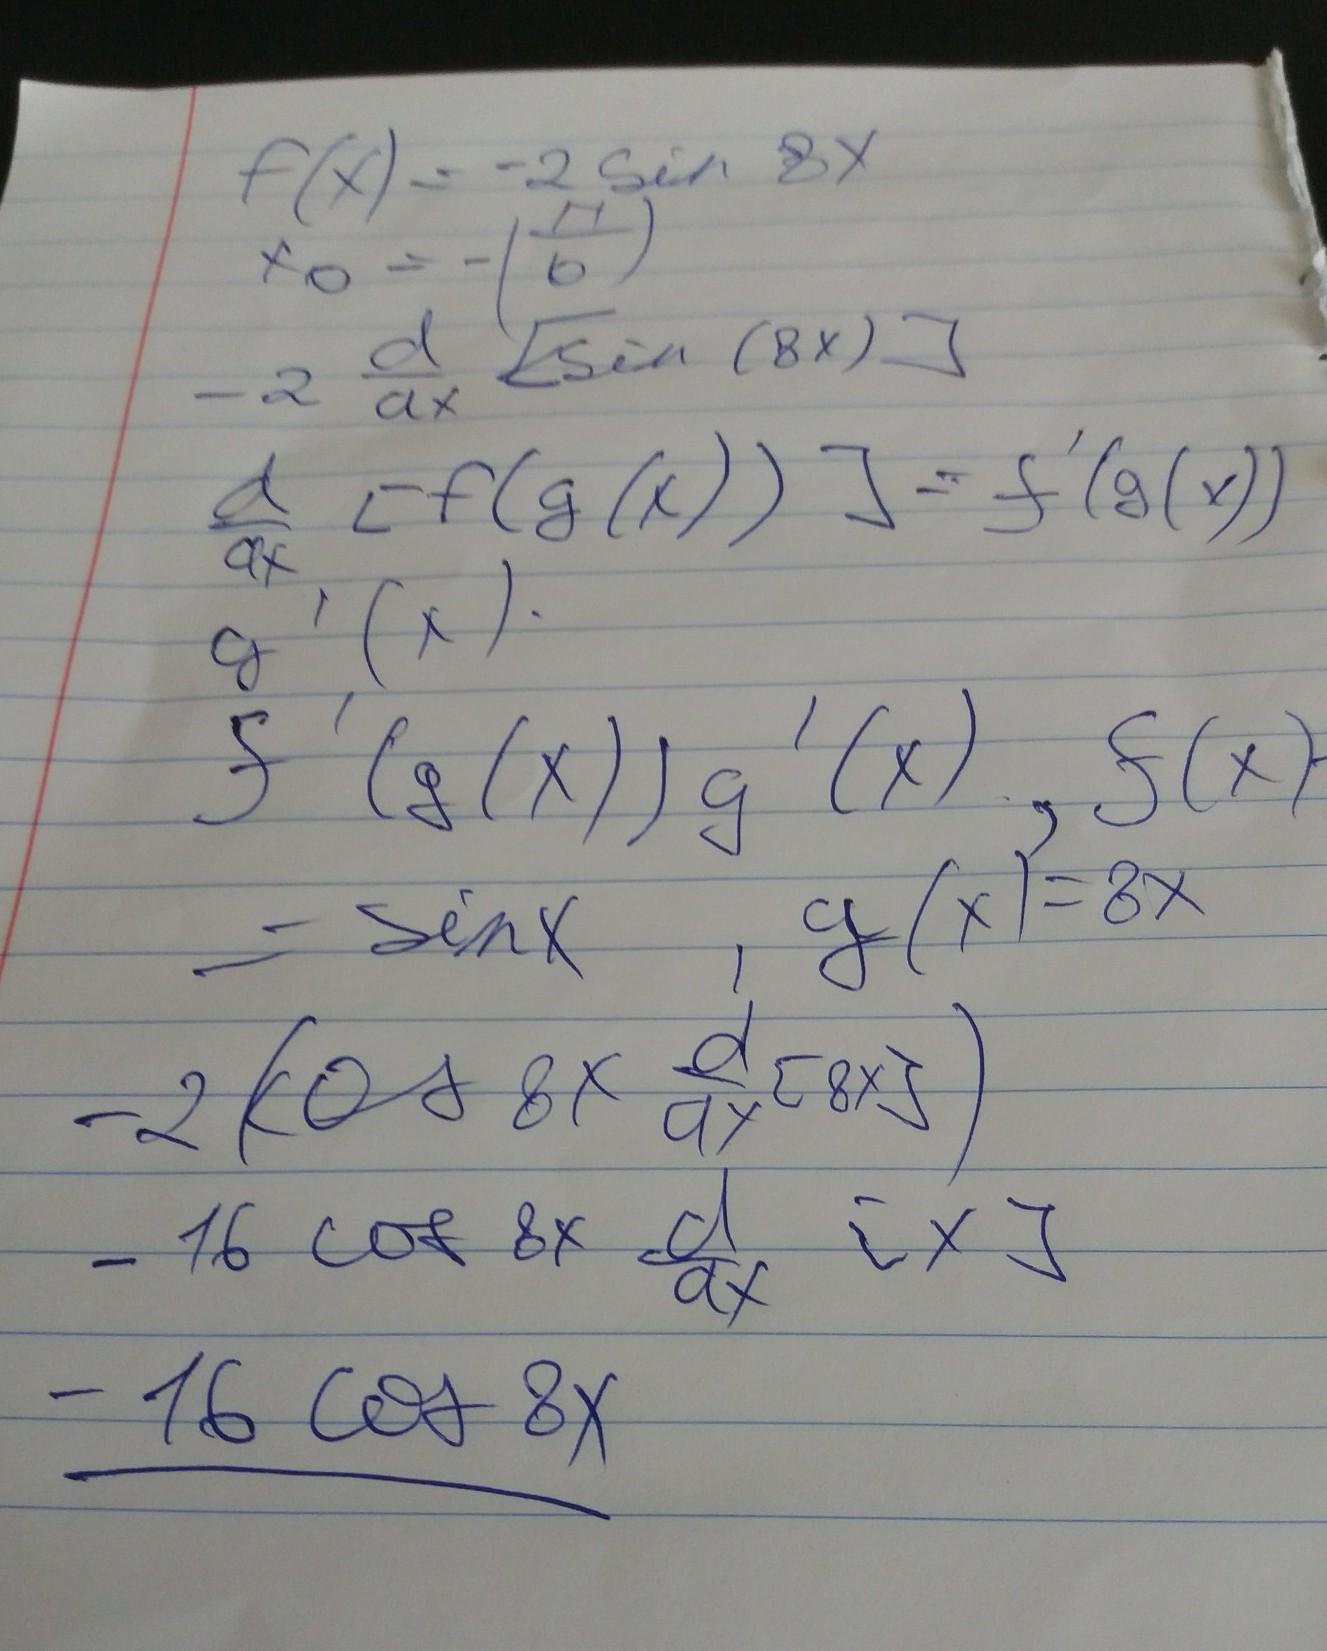 f(x) = -2 sin 8x
x₀ = -(π/6)
-2 d/dx [sin (8x)]
d/dx [f(g(x))] = f'(g(x))
g'(x).
f'(g(x))g'(x), f(x)
= sinx , g(x) = 8x
-2(cos 8x d/dx [8x])
- 16 cos 8x d/dx [x]
- 16 cos 8x